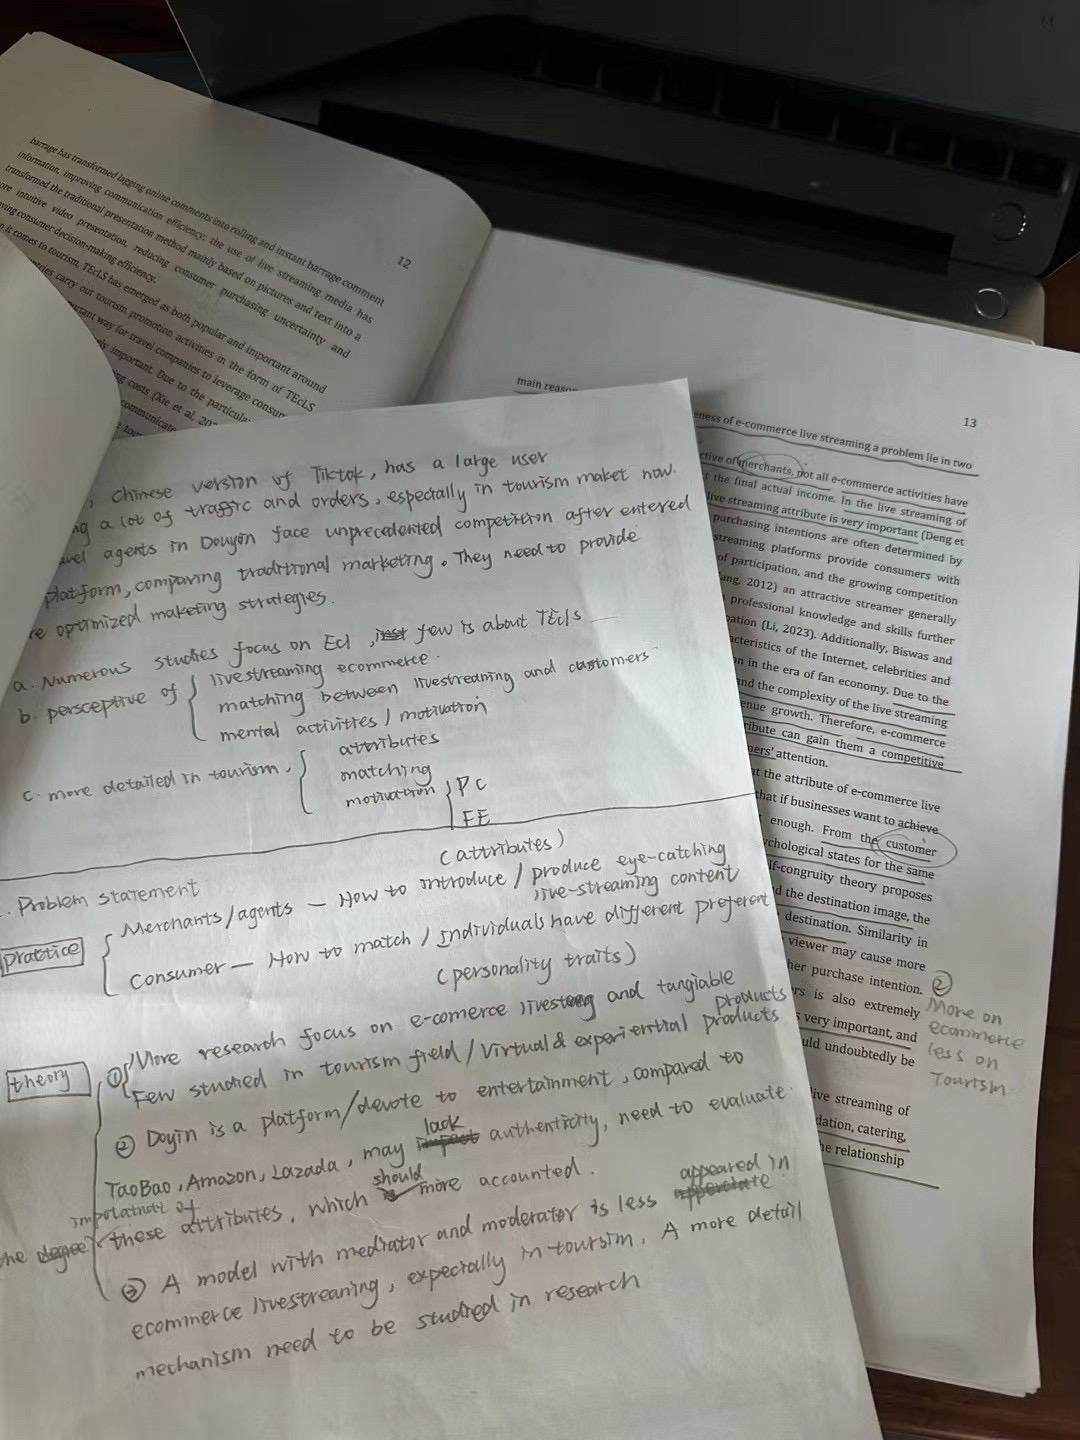 barrage has transformed lagging online comments into rolling and instant barrage comment
information, improving communication efficiency; the use of live streaming media has
transformed the traditional presentation method mainly based on pictures and text into a
ore intuitive video presentation, reducing consumer purchasing uncertainty and
ving consumer decision-making efficiency.
n it comes to tourism, TEcLS has emerged as both popular and important around
ntries carry out tourism promotion activities in the form of TEcLS
rtant way for travel companies to leverage consum
ly important. Due to the particula
ng costs (Xie et al, 20
communicate
12
13
main reaso
eness of e-commerce live streaming a problem lie in two
ctive of merchants, not all e-commerce activities have
t the final actual income. In the live streaming of
live streaming attribute is very important (Deng et
purchasing intentions are often determined by
streaming platforms provide consumers with
of participation, and the growing competition
ang, 2012) an attractive streamer generally
professional knowledge and skills further
pation (Li, 2023). Additionally, Biswas and
acteristics of the Internet, celebrities and
on in the era of fan economy. Due to the
and the complexity of the live streaming
enue growth. Therefore, e-commerce
ribute can gain them a competitive
mers' attention.
at the attribute of e-commerce live
that if businesses want to achieve
enough. From the customer
ychological states for the same
lf-congruity theory proposes
d the destination image, the
destination. Similarity in
viewer may cause more
her purchase intention.
rs is also extremely
s very important, and
uld undoubtedly be
live streaming of
dation, catering,
he relationship
②
More on
ecommerce
less on
Tourism
, Chinese version of Tiktok, has a large user
ng a lot of traffic and orders, especially in tourism maket now.
avel agents in Douyin face unprecedented competition after entered
platform, comparing traditional marketing. They need to provide
re optimized maketing strategies.
a. Numerous studies focus on Ecl, just few is about TEcls
b. persceptive of { livestreaming ecommerce.
matching between livestreaming and customers
mental activities / motivation
c. more detailed in tourism. { attributes
matching
motivation } PC
EE
(attributes)
. Problem statement
practice { Merchants/agents — How to introduce / produce eye-catching
live-streaming content
Consumer — How to match / Individuals have different preferent
(personality traits)
theory { ① { More research focus on e-comerce livesteong and tangiable
products
Few studied in tourism field / Virtual & experiential products
② Doyin is a platform/devote to entertainment, compared to
TaoBao, Amazon, Lazada, may lack authenticity, need to evaluate
the degree impotatnat of these attributes, which should more accounted.
③ A model with mediator and moderator is less appeared in
ecommerce livestreaning, expecially in toursim. A more detail
mechanism need to be studied in research